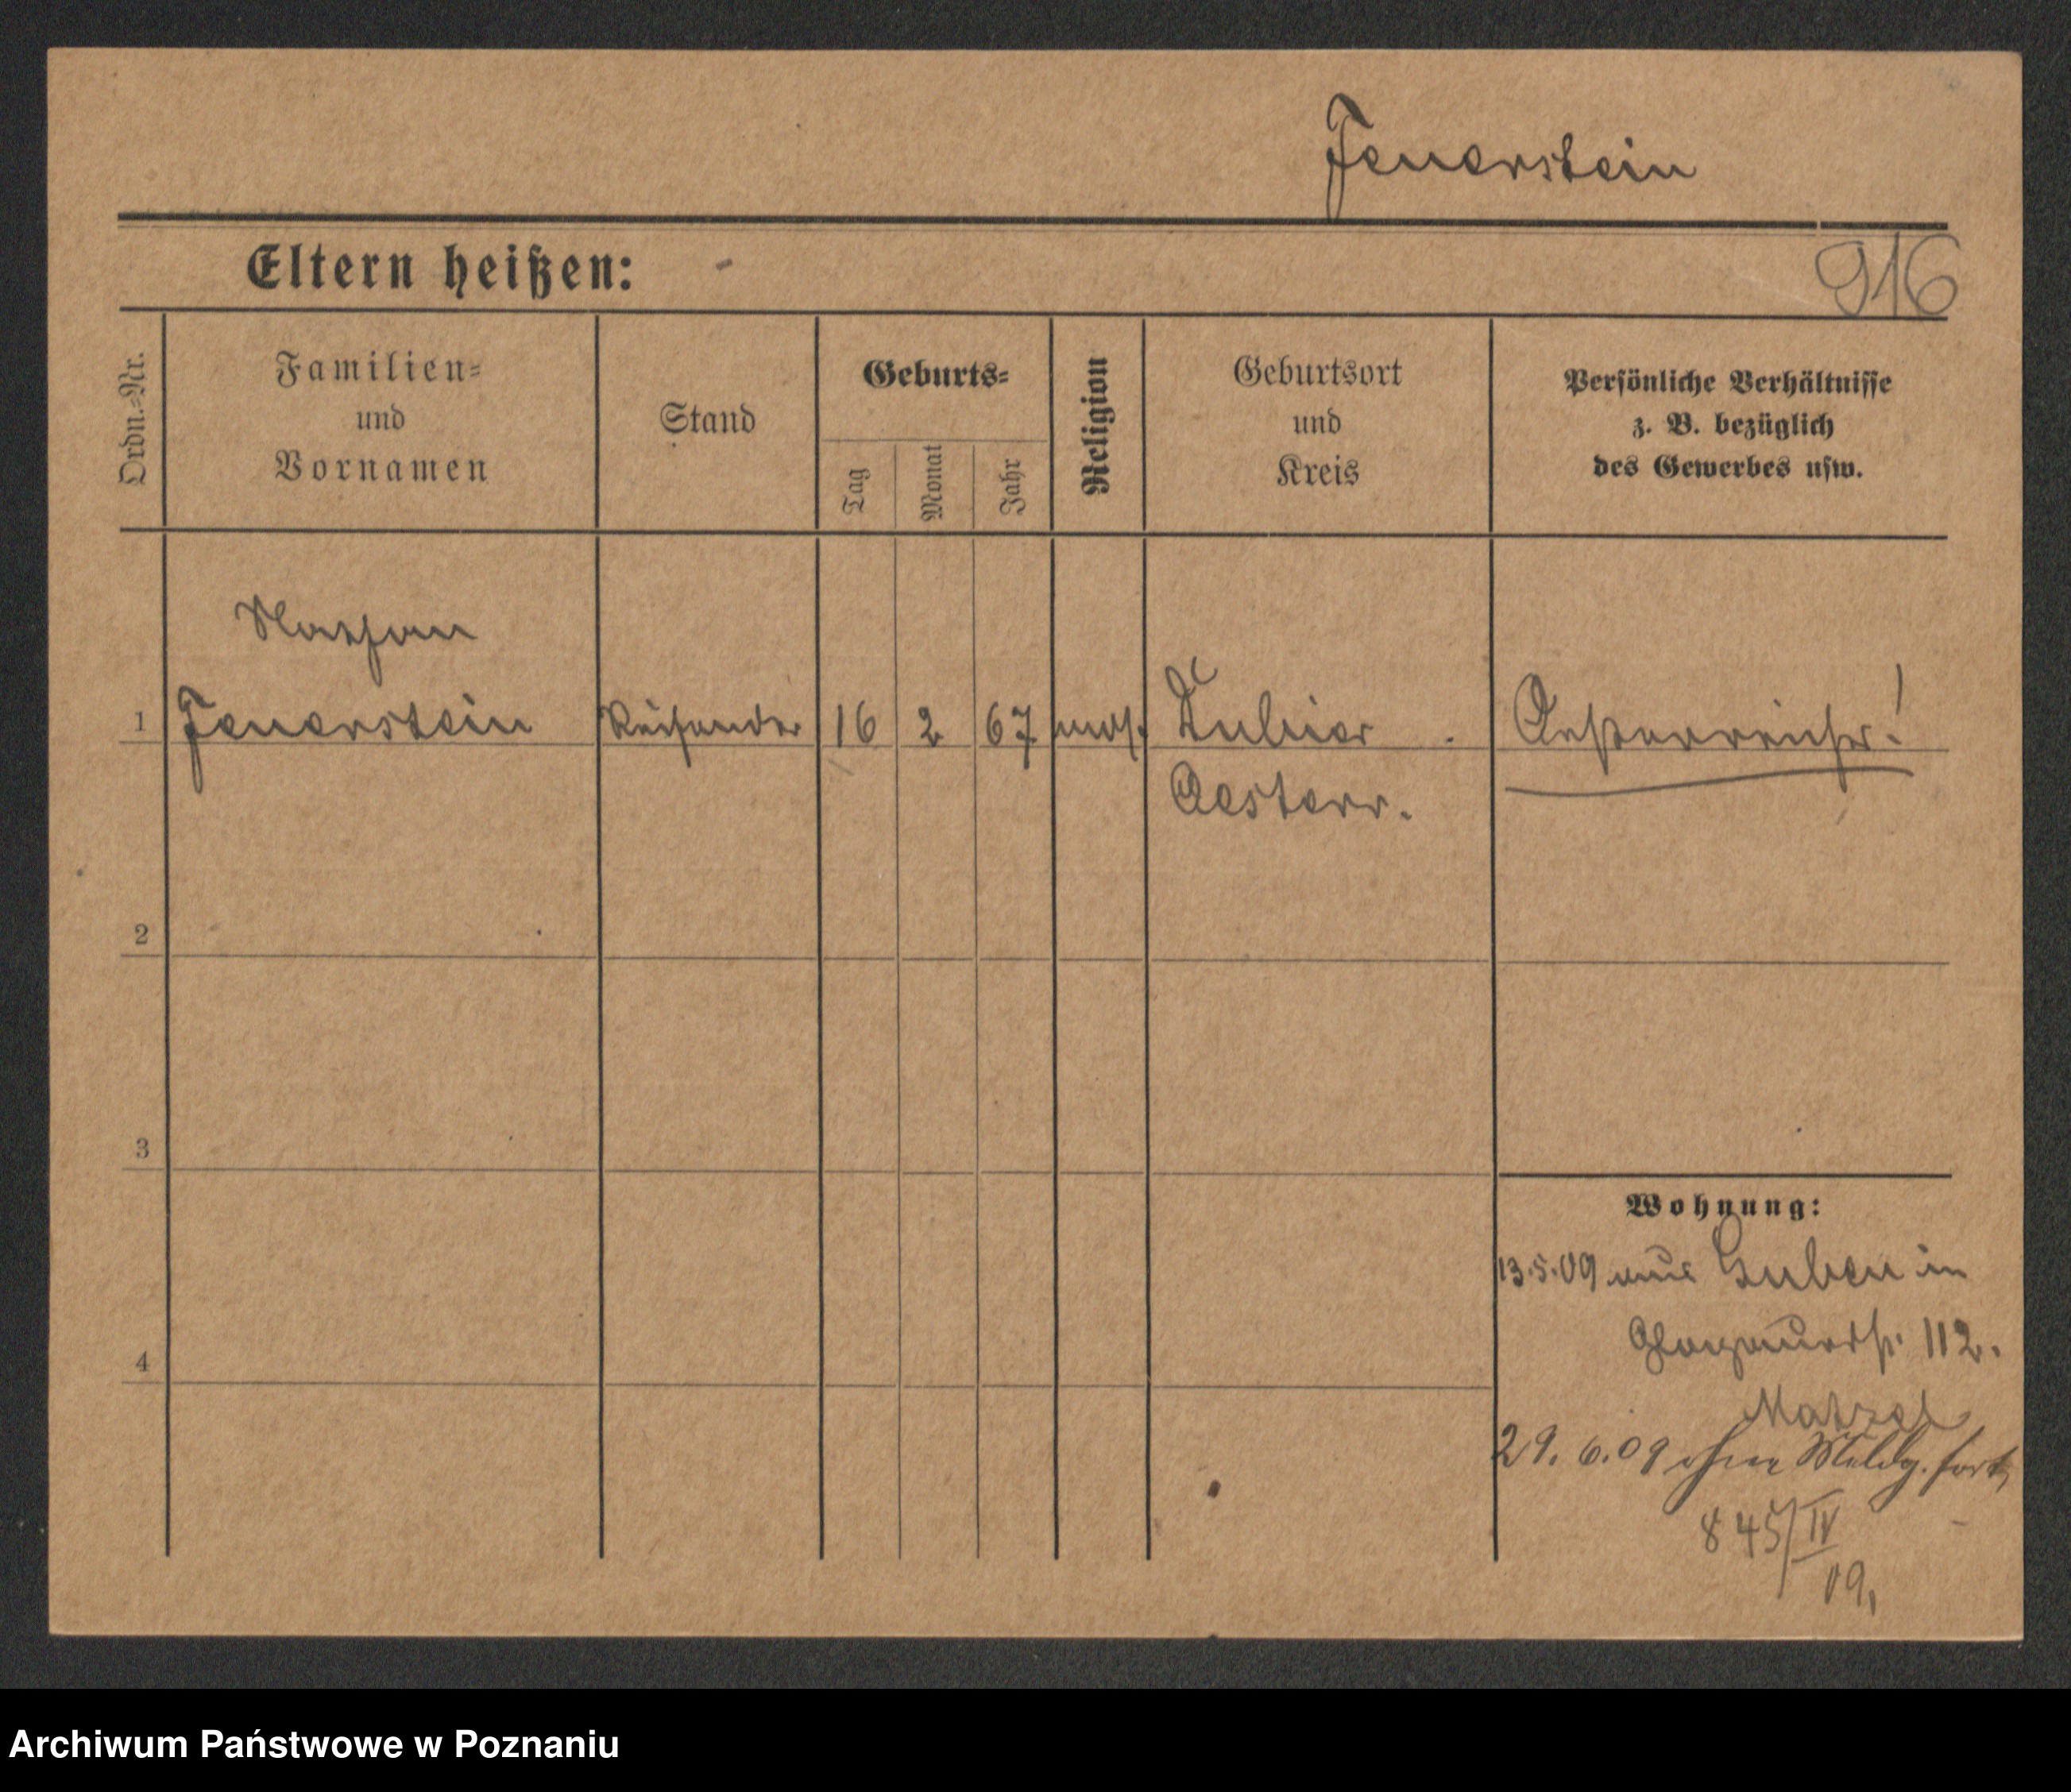 Feuerstein
Eltern heißen: -
916
Ordn.-Nr.
Familien-
und
Vornamen
Stand
Geburts-
Tag
Monat
Jahr
Religion
Geburtsort
und
Kreis
Persönliche Verhältnisse
z. B. bezüglich
des Gewerbes usw.
Nathan
1 Feuerstein Reisender 16 2 67 mos. Oesterreicher!
Oesterr.
2
3
4
Wohnung:
13.5.09 aus Guben in
Glogauerstr. 112.
29.6.09 ohne Meldg. fort,
845/IV
09,
Archiwum Państwowe w Poznaniu